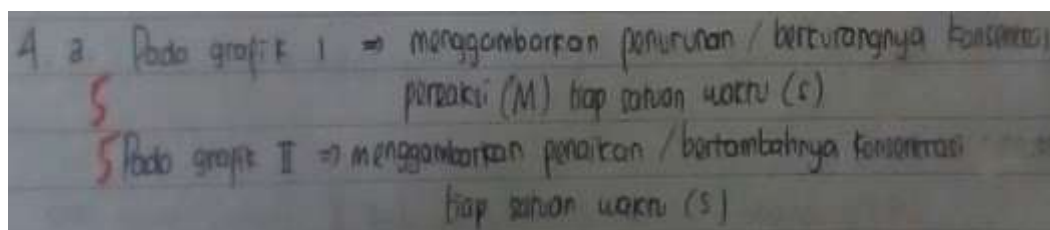 4 a. Pada grafik I ⇒ menggambarkan penurunan / berkurangnya konsentrasi
5 pereaksi (M) tiap satuan waktu (s)
5 Pada grafik II ⇒ menggambarkan penaikan / bertambahnya konsentrasi
tiap satuan waktu (s)